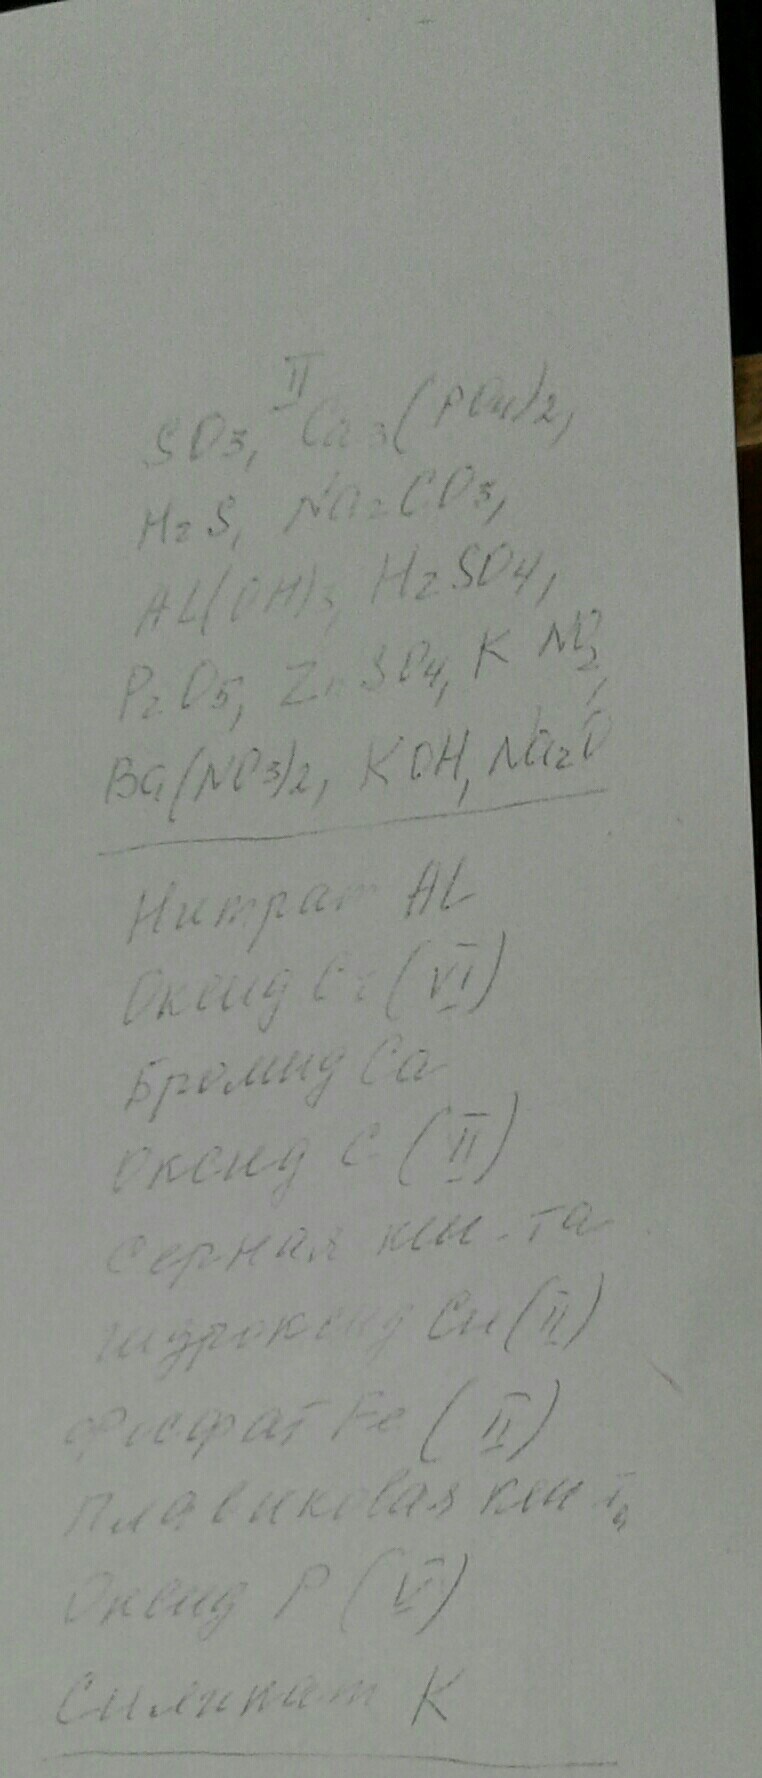 II
SO3, Ca3(PO4)2,
H2S, Na2CO3,
AL(OH)3, H2SO4,
P2O5, ZnSO4, K NO2,
Ba(NO3)2, KOH, Na2O
Нитрат AL
Оксид Cr (VI)
Бромид Ca
Оксид C (II)
Серная кис-та
гидроксид Cu (II)
Фосфат Fe (II)
Плавиковая кис-та
Оксид P (V)
Силикат K